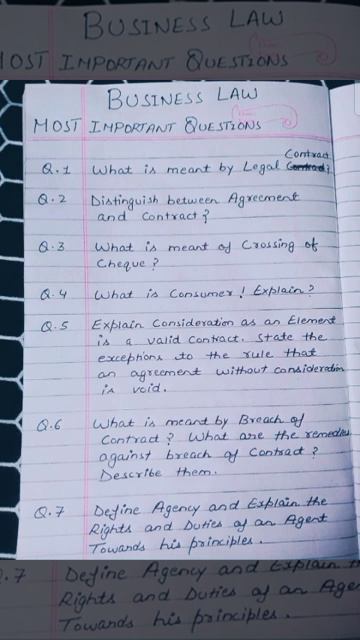 BUSINESS LAW
MOST IMPORTANT QUESTIONS
BUSINESS LAW
MOST IMPORTANT QUESTIONS
Contract
Q.1 What is meant by Legal ?
Q.2 Distinguish between Agreement
and Contract?
Q.3 What is meant of Crossing of
Cheque?
Q.4 What is Consumer! Explain?
Q.5 Explain Consideration as an Element
is a valid Contract. State the
exceptions to the rule that
an agreement without consideration
is void.
Q.6 What is meant by Breach of
Contract? What are the remedies
against breach of Contract?
Describe them.
Q.7 Define Agency and Explain the
Rights and Duties of an Agent
Towards his principles.
.7 Define Agency and Explain
Rights and Duties of an Age
Towards his principles.